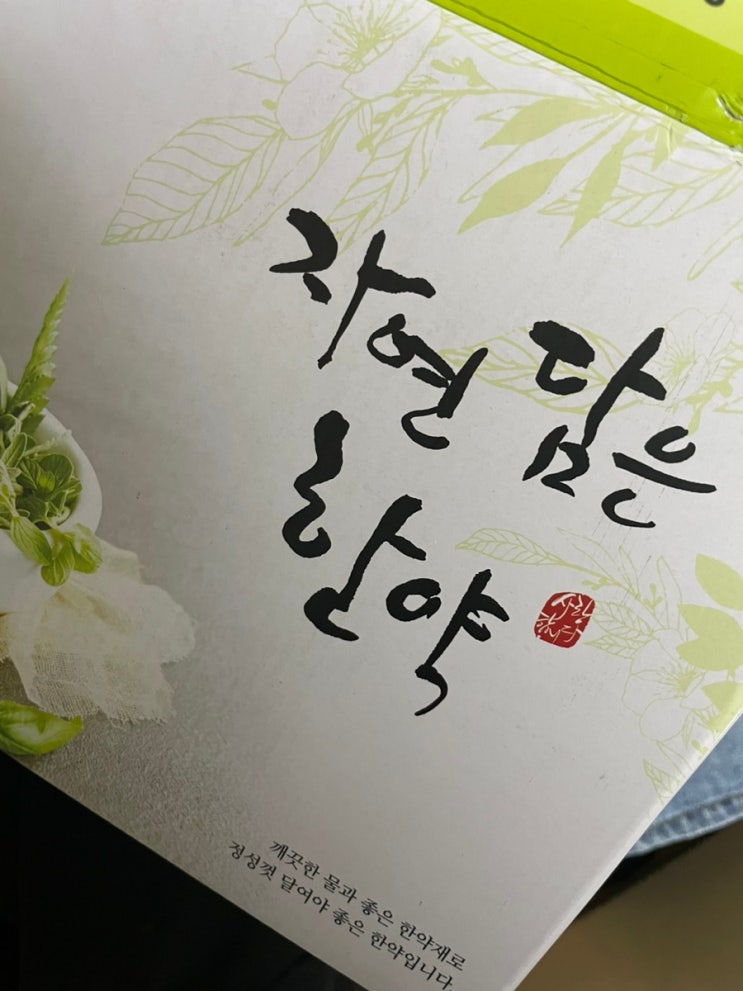 자연 담은
한약
깨끗한 물과 좋은 한약재로
정성껏 달여야 좋은 한약입니다.